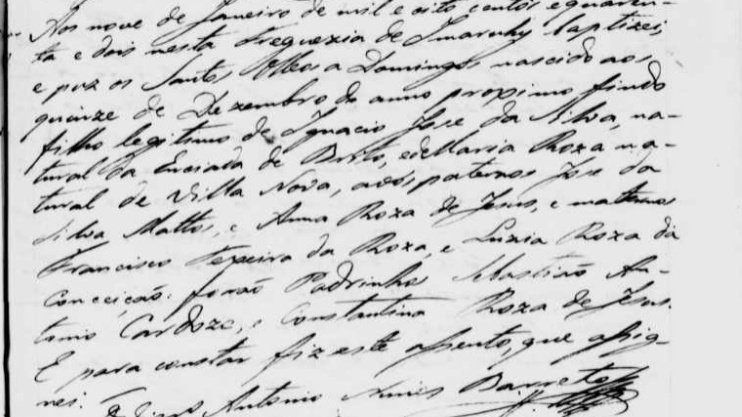 Aos nove de Janeiro de mil e oito centos equaren-
ta e dois nesta Freguezia de Imaruhy baptizei,
e puz os Santos Oleos a Domingos nascido aos
quinze de Dezembro do anno proximo findo
filho legitimo de Ignacio Jose da Silva, na-
tural da Enciada de Brito, edeMaria Roza na-
tural de Villa Nova, avós paternos Jose da
Silva Mattos, e Anna Roza de Jesus, e maternos
Francisco Teixeira da Roza, e Luzia Roza da
Conceição: forão Padrinhos Sebastião An-
tonio Cardozo, e Constantina Roza de Jesus.
E para constar fiz este assento, que assig-
nei.
Antonio Nunes Barreto